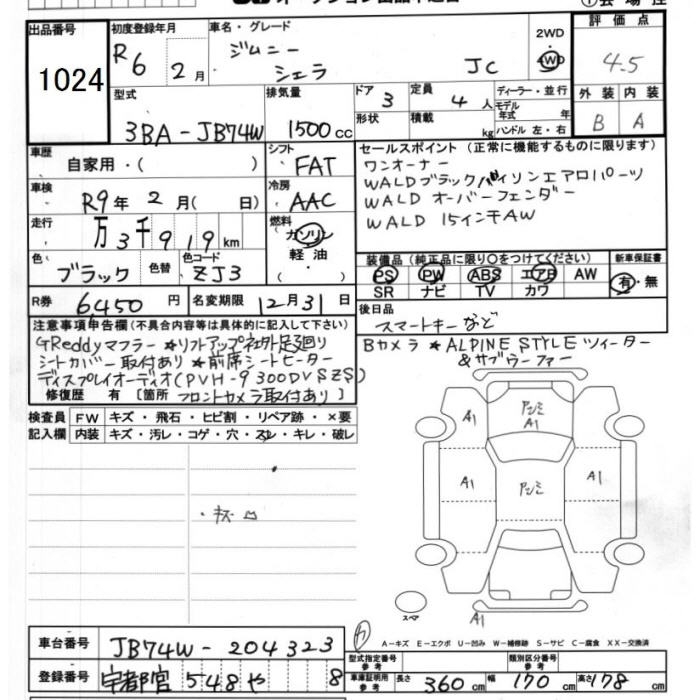 出品番号 初度登録年月 車名・グレード 2WD 評価点
1024 R6年 2月 ジムニー シエラ JC 4WD 4.5
型式 排気量 ドア 定員 ディーラー・並行 外装 内装
3BA-JB74W 1500cc 3 4人 モデル年式 年 B A
形状 積載 kg ハンドル 左・右
車歴 シフト セールスポイント (正常に機能するものに限ります)
自家用・( ) FAT ワンオーナー
車検 冷房 WALDブラックバイソンエアロパーツ
R9年 2月( 日) AAC WALD オーバーフェンダー
走行 燃料 WALD 15インチAW
万3千919km ガソリン
軽油
・( )
色 色替 色コード 装備品 (純正品に限り○をつけてください) 新車保証書
ブラック ZJ3 PS PW ABS エアB AW 有・無
SR ナビ TV カワ
R券 6,450円 名変期限 12月31日 後日品
スマートキーなど
注意事項申告欄(不具合内容等は具体的に記入して下さい)
GReddyマフラー ★リフトアップ社外足回り Bカメラ ★ALPINE STYLE ツィーター
シートカバー取付あり ★前席シートヒーター &サブウーファー
ディスプレイオーディオ(PVH-9300DVSZS)
修復歴 有 [箇所 フロントカメラ取付あり]
検査員 FW キズ・飛石・ヒビ割・リペア跡・×要
記入欄 内装 キズ・汚レ・コゲ・穴・スレ・キレ・破レ
A1 アンミ A1
A1
A1 アンミ A1
・キズ
スペア A1
A-キズ E-エクボ U-凹み W-補修跡 S-サビ C-腐食 XX-交換済
車台番号 JB74W-204323
型式指定番号 参考 類別区分番号 参考
登録番号 宇都宮 548 や 8
車庫証明用 参考 長さ 360cm 幅 170cm 高さ 178cm